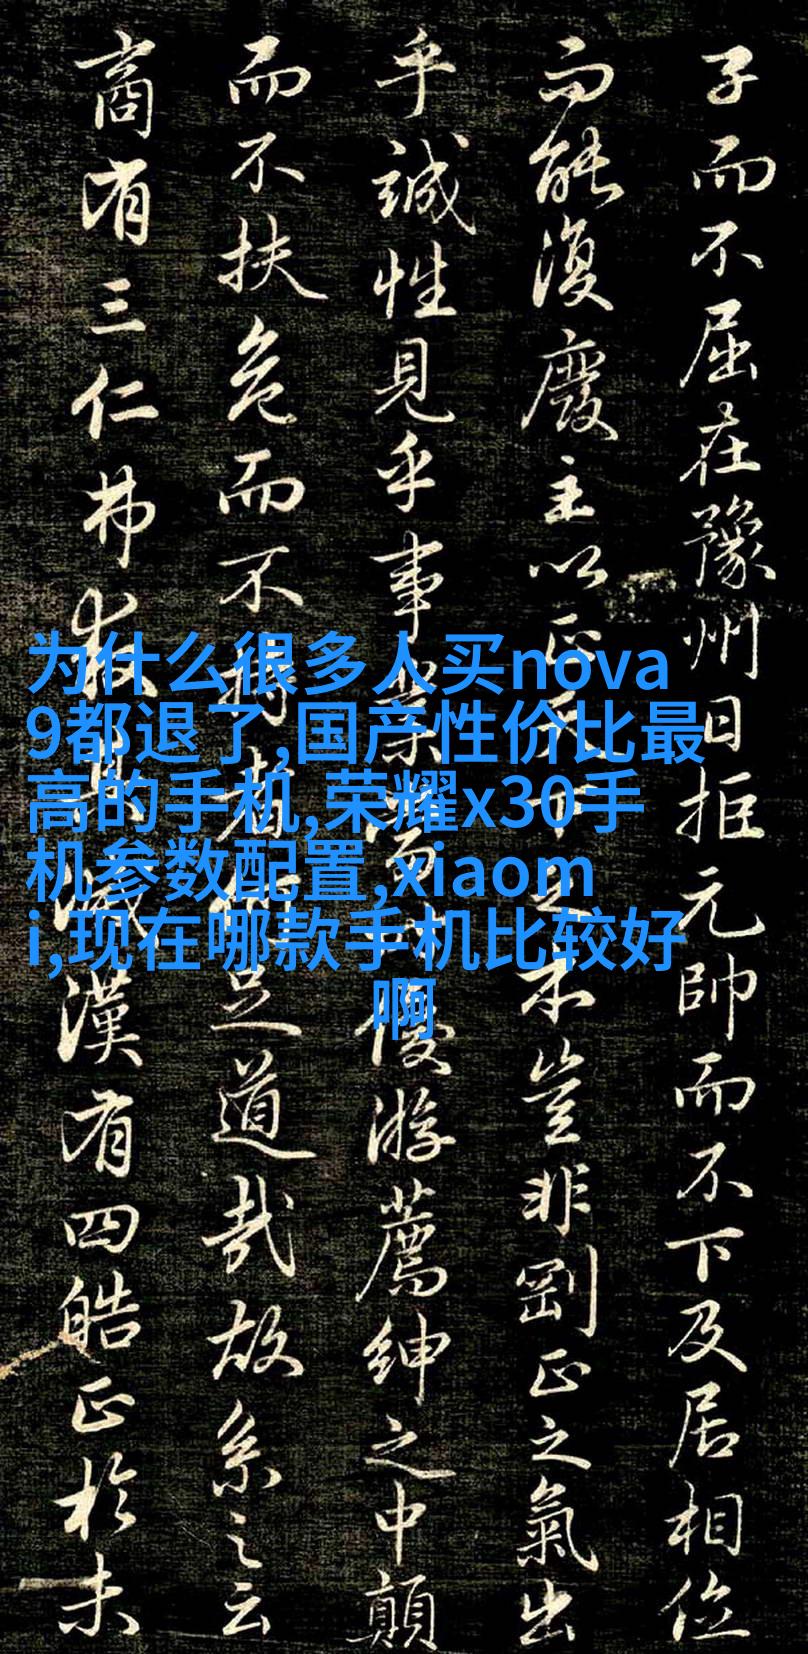 子而不屈在豫州日拒元帥而不下及居相位
而能復廢主以正天下之本豈非剛正之氣出
乎誠性見乎事業當時優游薦紳之中顛
而不扶危而不持者何足道哉故系之云
商有三仁弗救其滅漢有四皓正於未
为什么很多人买nova
9都退了,国产性价比最
高的手机,荣耀x30手
机参数配置,xiaom
i,现在哪款手机比较好
啊